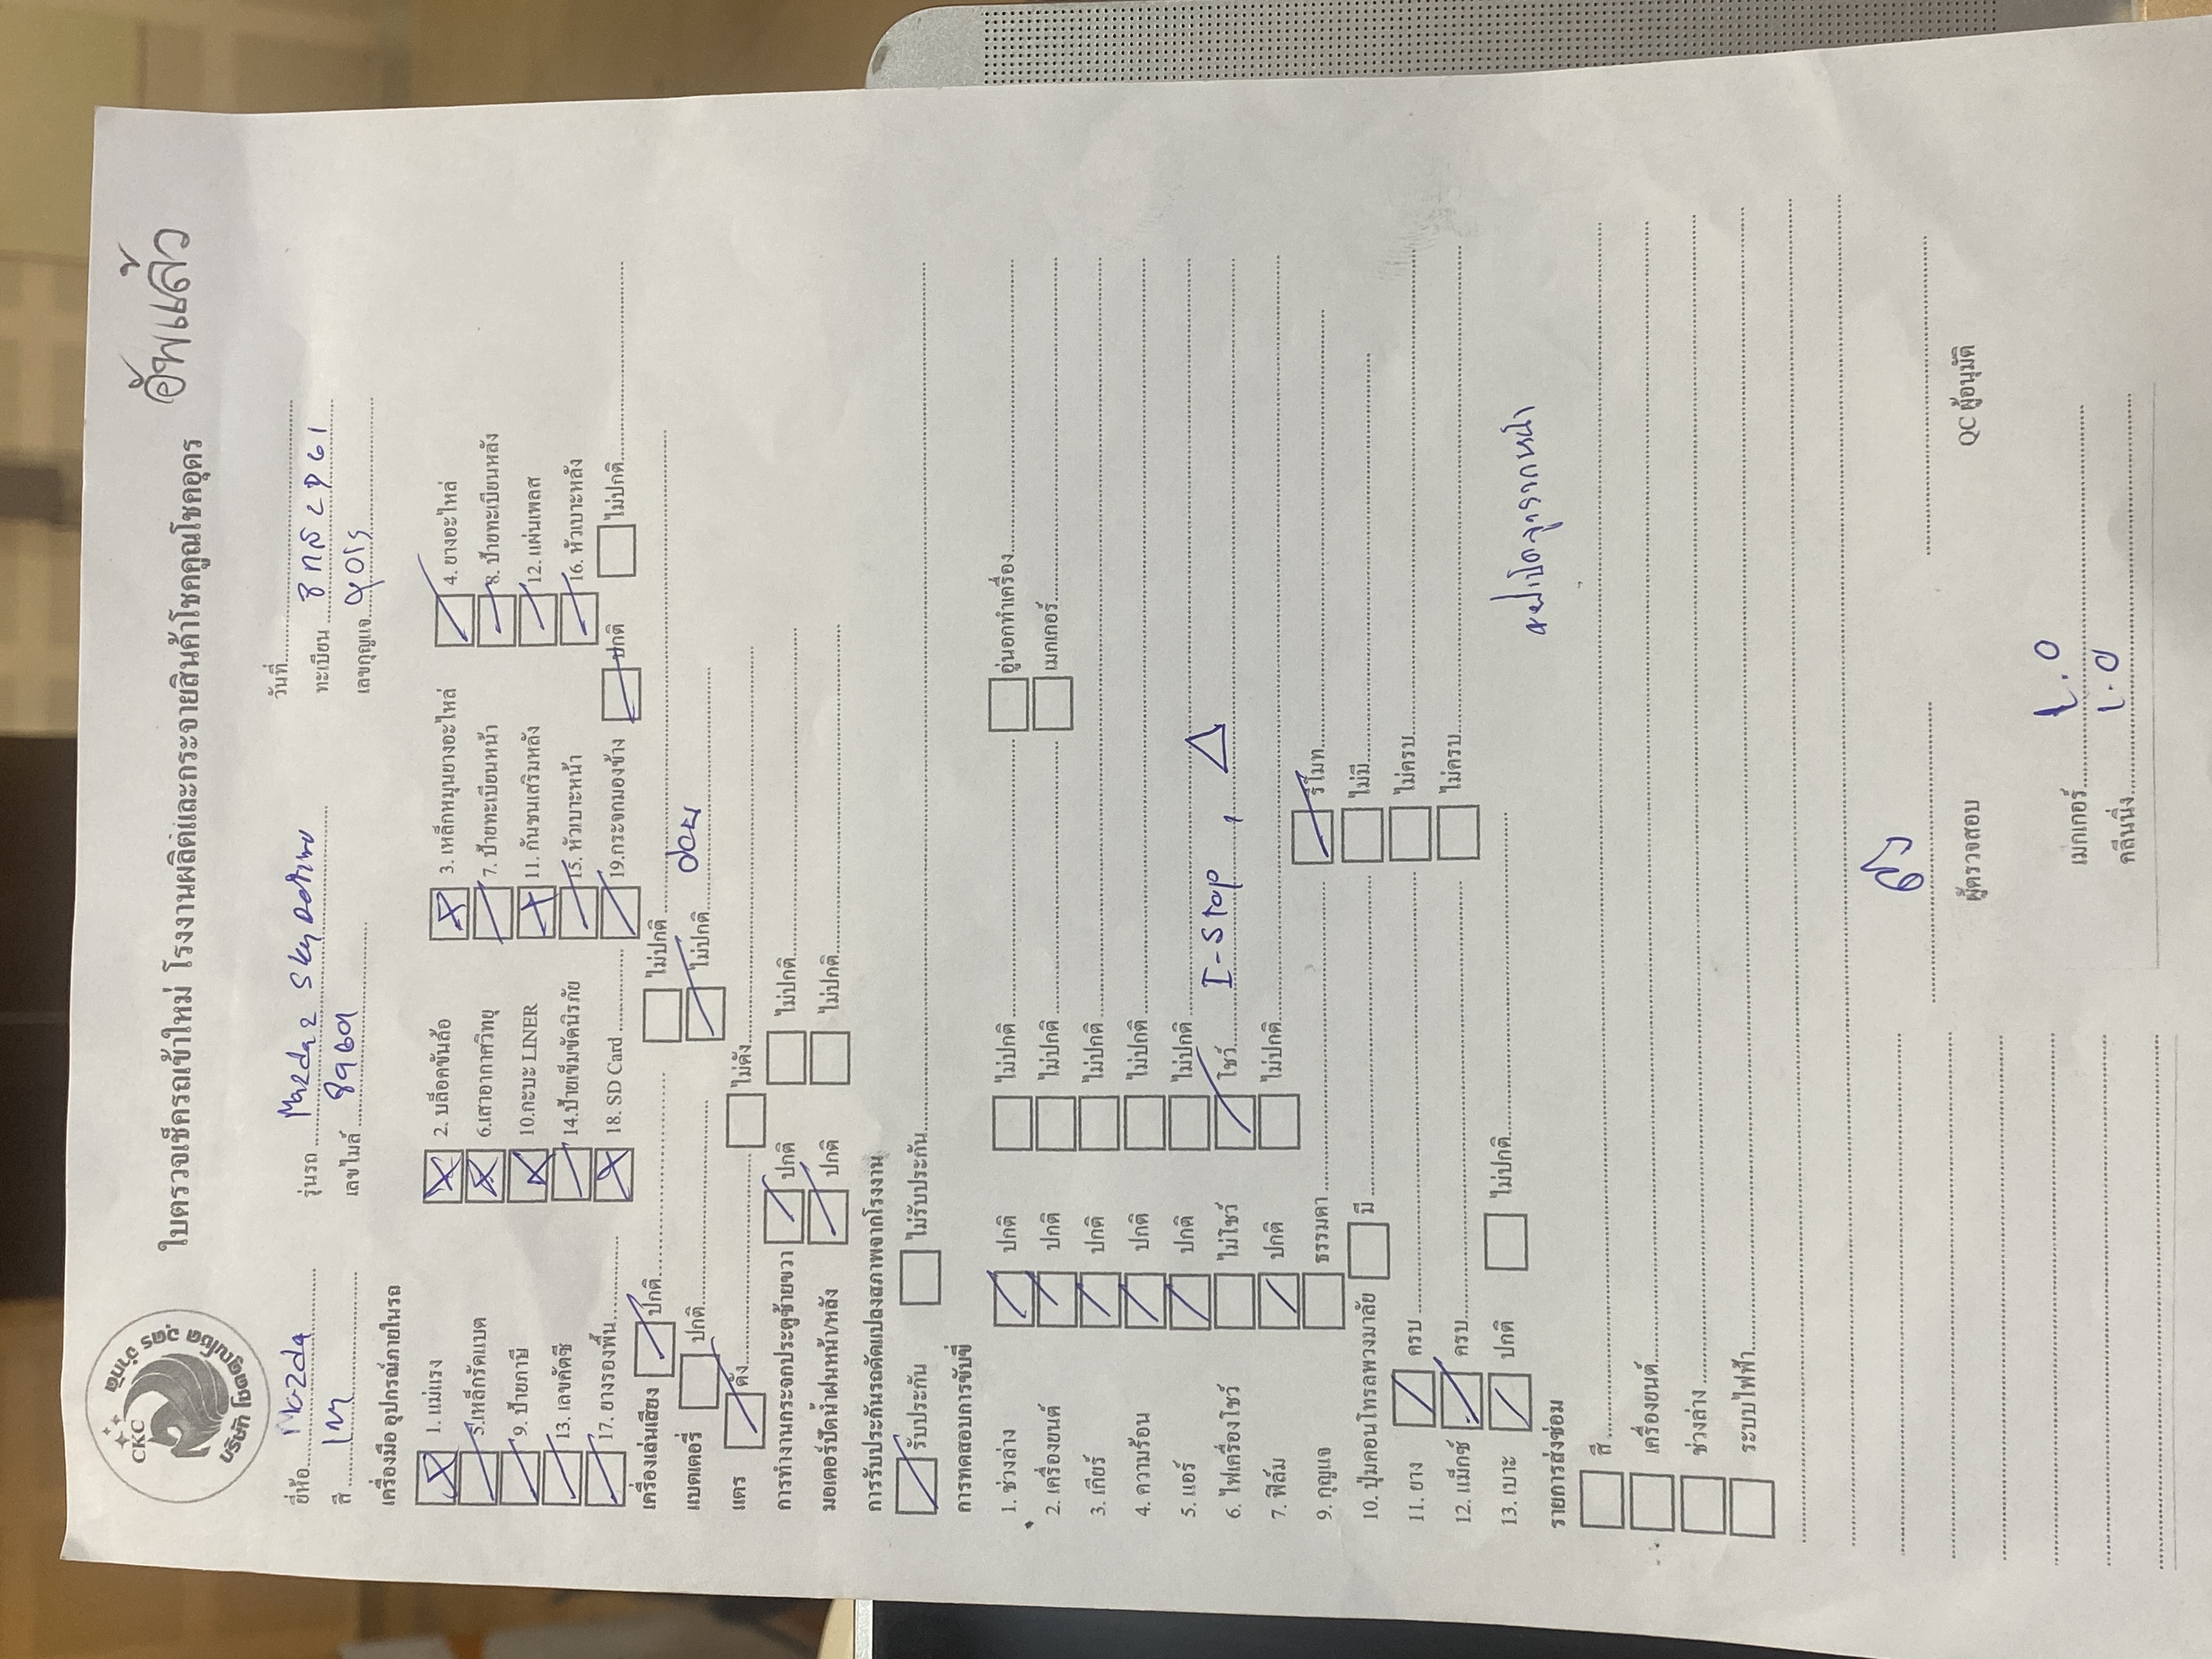 อัพแล้ว
CKC
บริษัท โชคคูณโชค อุดร จำกัด
ใบตรวจเช็ครถเข้าใหม่ โรงงานผลิตและกระจายสินค้าโชคคูณโชคอุดร
วันที่
ยี่ห้อ Mazda รุ่นรถ Mazda 2 ทะเบียน
สี เทา เลขไมล์ 89609 เลขกุญแจ
เครื่องมือ อุปกรณ์ภายในรถ
1. แม่แรง 2. บล็อคขันล้อ 3. เหล็กหมุนยางอะไหล่ 4. ยางอะไหล่
5.เหล็กรัดแบต 6.เสาอากาศวิทยุ 7. ป้ายทะเบียนหน้า 8. ป้ายทะเบียนหลัง
9. ป้ายภาษี 10.กะบะ LINER 11. กันชนเสริมหลัง 12. แผ่นเพลส
13. เลขคัตซี 14.ป้ายเข็มขัดนิรภัย 15. หัวเบาะหน้า 16. หัวเบาะหลัง
17. ยางรองพื้น 18. SD Card 19.กระจกมองข้าง ปกติ ไม่ปกติ
เครื่องเล่นเสียง ปกติ ไม่ปกติ
แบตเตอรี่ ปกติ ไม่ปกติ
แตร ดัง ไม่ดัง
การทำงานกระจกประตูซ้ายขวา ปกติ ไม่ปกติ
มอเตอร์ปัดน้ำฝนหน้า/หลัง ปกติ ไม่ปกติ
การรับประกันรถดัดแปลงสภาพจากโรงงาน
รับประกัน ไม่รับประกัน
การทดสอบการขับขี่
1. ช่วงล่าง ปกติ ไม่ปกติ อู่นอกทำเครื่อง
2. เครื่องยนต์ ปกติ ไม่ปกติ เมกเกอร์
3. เกียร์ ปกติ ไม่ปกติ
4. ความร้อน ปกติ ไม่ปกติ
5. แอร์ ปกติ ไม่ปกติ
6. ไฟเครื่องโชว์ ไม่โชว์ โชว์ I-Stop ,
7. ฟิล์ม ปกติ ไม่ปกติ
9. กุญแจ ธรรมดา รีโมท
10. ปุ่มคอนโทรลพวงมาลัย มี ไม่มี
11. ยาง ครบ ไม่ครบ
12. แม็กซ์ ครบ ไม่ครบ
13. เบาะ ปกติ ไม่ปกติ
รายการส่งซ่อม
สี
เครื่องยนต์
ช่วงล่าง
ระบบไฟฟ้า
ผู้ตรวจสอบ QC ผู้อนุมัติ
เมกเกอร์
คลีนนิ่ง